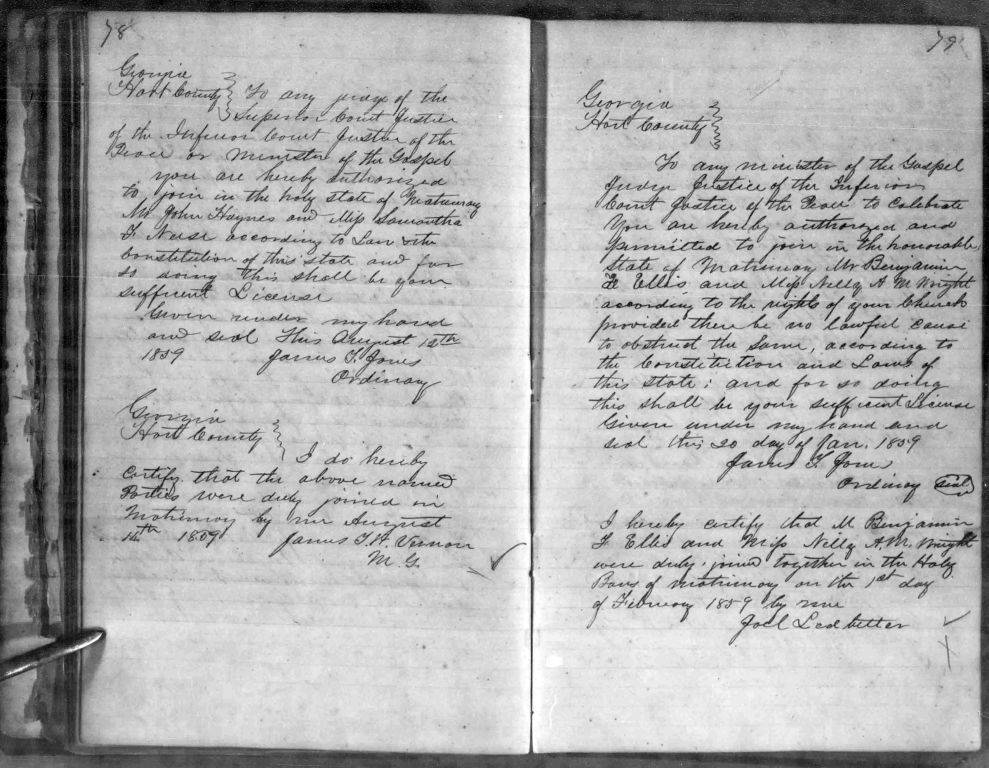 78
Georgia
Hart County
To any judge of the
Superior Court Justice
of the Inferior Court Justice of the
Peace or Minister of the Gospel
you are hereby authorized
to join in the holy state of Matrimony
Mr. John Haynes and Miss Samantha
F Nase according to Law & the
Constitution of this state and for
so doing this shall be your
sufficient License
Given under my hand
and seal This August 12th
1859 James T. Jones
Ordinary
Georgia
Hart County
I do hereby
certify that the above named
Parties were duly joined in
Matrimony by me August
14th 1859 James T. H. Vernon
M. G.
79
Georgia
Hart County
To any minister of the Gospel
Judge Justice of the Inferior
Court Justice of the Peace to Celebrate
You are hereby authorized and
permitted to join in the honorable
state of Matrimony Mr Benjamin
F Ellis and Miss Nelly A M Wright
according to the rights of your Church
provided there be no lawful cause
to obstruct the Same, according to
the Constitution and Laws of
this state; and for so doing
this shall be your sufficient License
Given under my hand and
seal this 20 day of Jan. 1859
James T. Jones
Ordinary seal
I hereby certify that M Benjamin
F. Ellis and Miss Nelly A. M. Wright
were duly joined together in the Holy
Bans of matrimony on the 1st day
of February 1859 by me
Joel Ledbetter